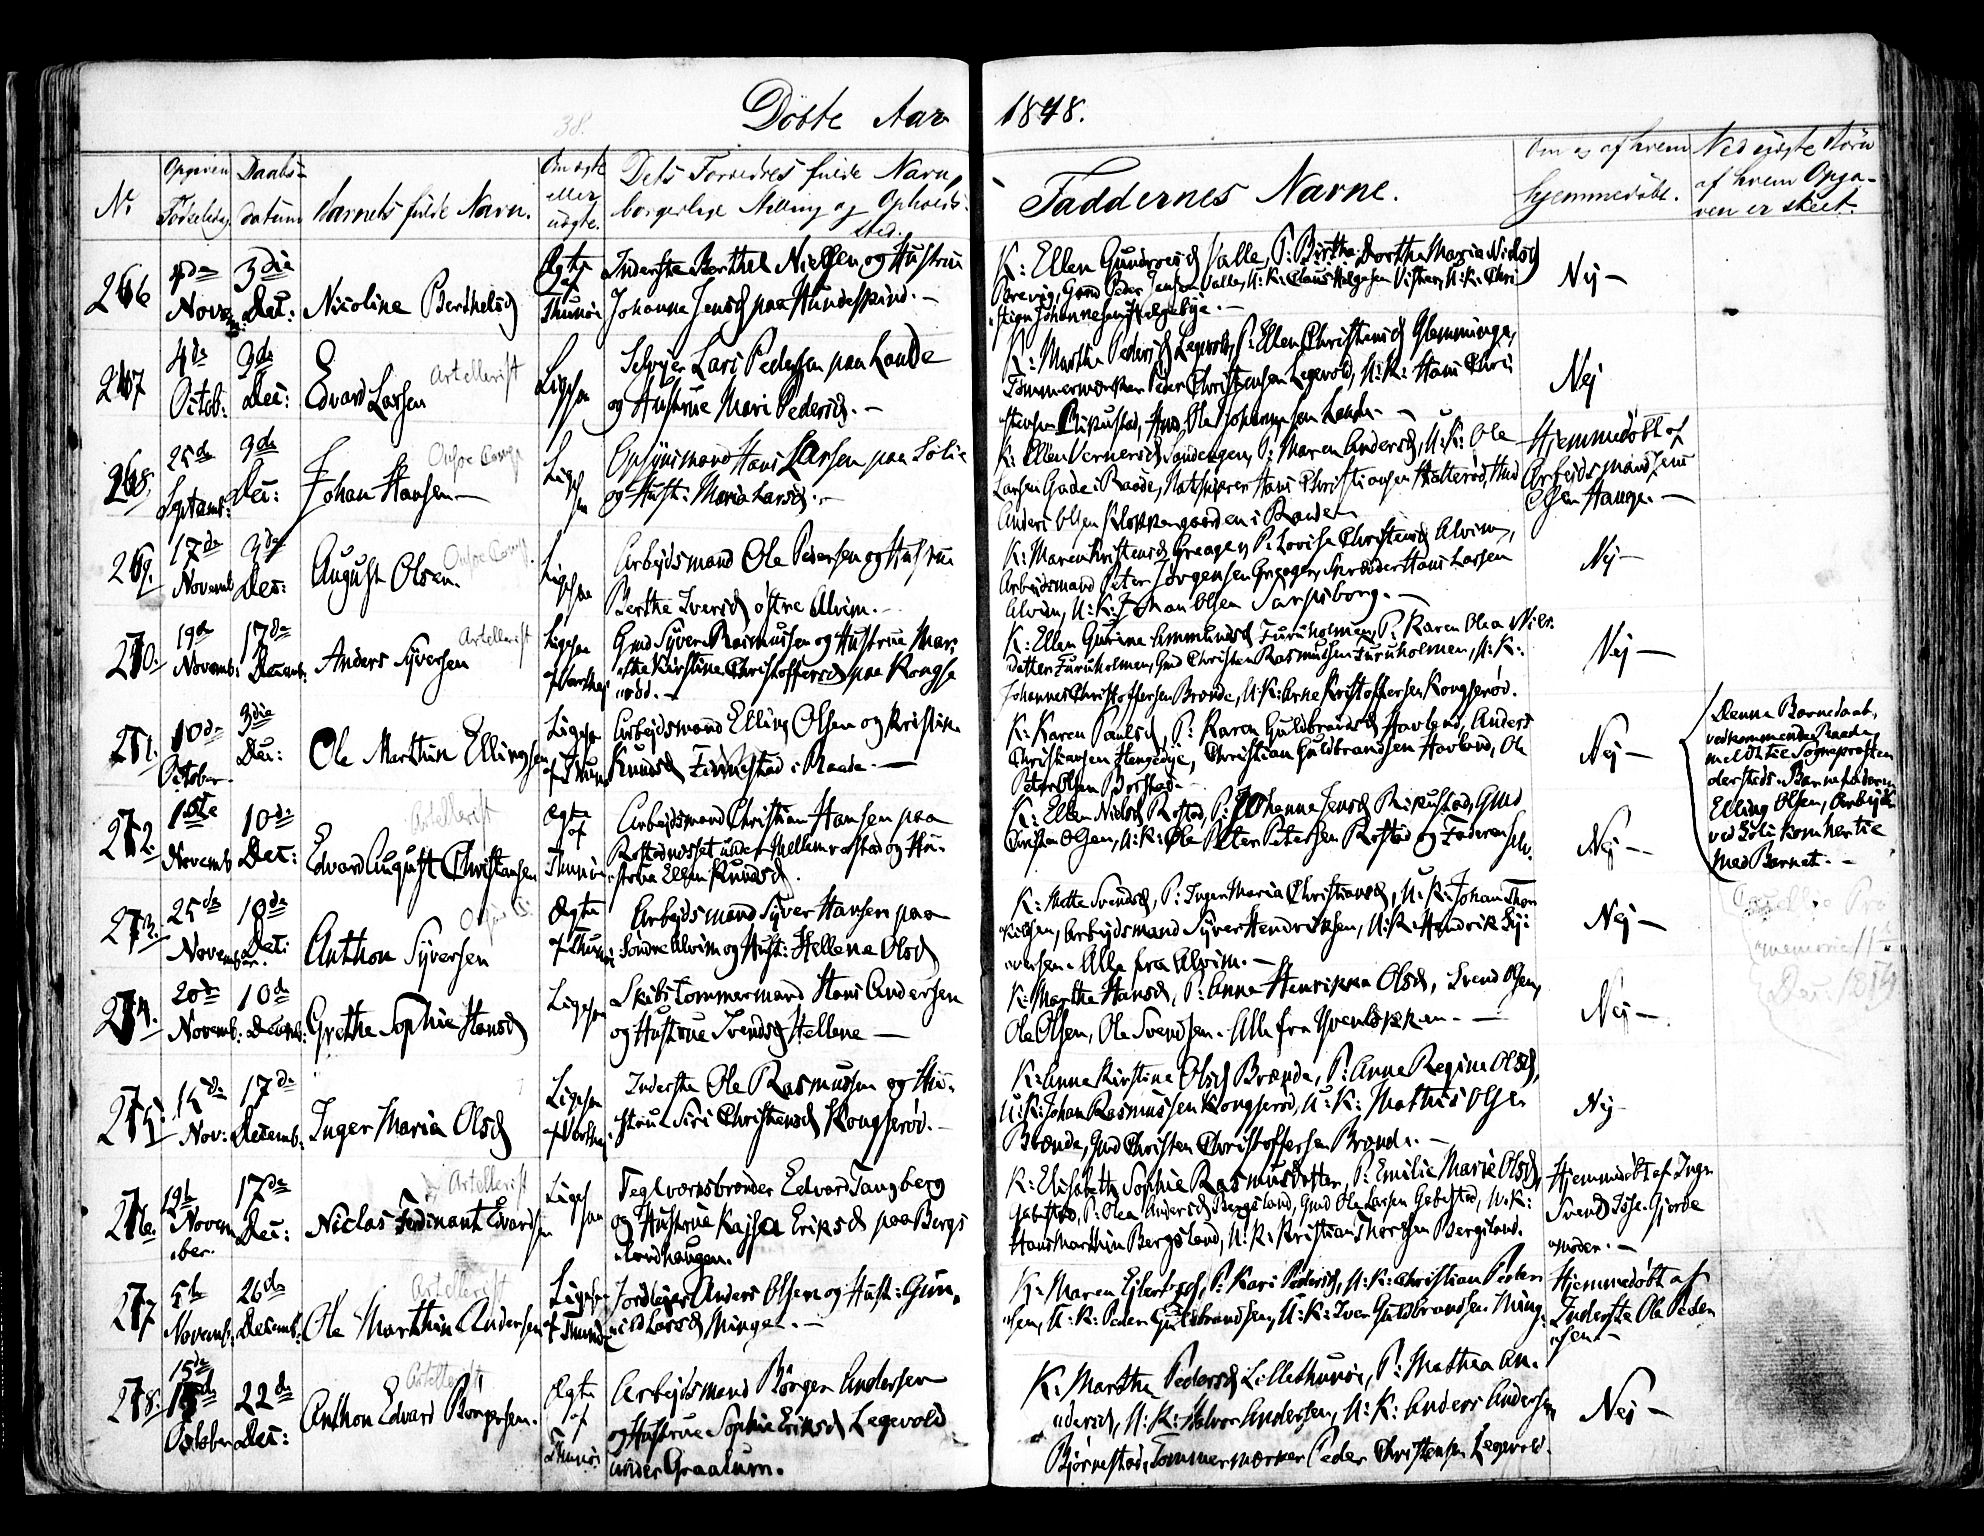 Döbte Aar 1848.
No
Opgiven Fødselsdag
Daabs-datum
Barnets fulde Navn.
Om ægte eller uægte.
Dets Forældres fulde Navn, borgerlige Stilling og Opholds-sted.
Faddernes Navne.
Om og af hvem hjemmedöbt.
Ved uægte Börn af hvem Opga-ven er skeet.
266
4de Novem:
3die Dec:
Nicoline Berthelsd
Ægte af Thunöe
Inderste Berthel Nielsen og Hustrue
Johanna Jensd paa Hundeskind.-
K: Ellen Gundersd Valle, P: Birthe Dorthea Maria Nielsd
Brevig, Gmd Peder Jensen Valle, U:K: Claus Helgesen Visteen, U:K: Chri
stian Johannesen Helgebye.-
Nej -
267
4de Octob:
3de Dec:
Edvard Larsen
Artellerist
Ligesaa
Selvejer Lars Pedersen paa Lande
og Hustrue Mari Pedersd.-
K: Marthe Pedersd Legevold, P: Ellen Christensd Glemminge,
Tömmermærker Peder Christensen Legevold, U:K: Hans Chri
stensen Rikustad, Gmd Ole Johannesen Lande.-
Nej
268.
25de Septemb:
3de Dec:
Johan Hansen-
Onsøe Comp
Ligesaa
Opsynsmand Hans Larsen paa Solie
og Hust: Maria Larsd.-
K: Ellen Vernersd Sandengen, P: Maren Andersd, U:K: Ole
Larsen Gade i Raade, Natskipper Hans Christiansen Halleröd, Gmd
Anders Olsen Klokkergaarden i Raade
Hjemmedöbt af
Arbejdsmand Jens
Olsen Hauge.-
269.
17de Novemb
3de Dec:
August Olsen.
Onsøe Comp.
Ligesaa
Arbejdsmand Ole Pedersen og Hustrue
Berthe Iversd östre Alvim.-
K: Maren Kristensd Greager, P: Lovise Christensd Alvim,
Arbejdsmand Peter Jörgensen Greager, Skrædder Hans Larsen
Alvim, U:K: Johan Olsen Sarpsborg.-
Nej -
270.
19de Novemb:
17de Decemb:
Anders Syversen
Artellerist
Ligesaa af Varteig
Gmd Syver Rasmussen og Hustrue Mar
the Kirstine Christoffersd paa Kongse
röd.-
K: Ellen Gurine Ammundsd Furuholmen, P: Karen Olea Nils-
datter Furuholmen, Gmd Christen Rasmussen Furuholmen, U:K:
Johannes Christoffersen Brænde, U:K: Arne Kristoffersen Kongseröd.
Nej -
271.
10de October
3die Dec:
Ole Marthin Ellingsen
Ligesaa af Thunö
Arbejdsmand Elling Olsen og Kristine
Knudsd Finnestad i Raade.-
K: Karen Paulsd, P: Karen Guldbrandsd Havland, Anders
Christiansen Hengebye, Christian Guldbrandsen Havland, Ole
Peter Olsen Borstad.-
Nej -
Denne Barnedaab,
vedkommende Raade,
meldt til Sognepræsten
dersteds. Barnefaderen
Elling Olsen, Arbejder
ved Solie kom hertil
med Barnet.-
272.
1ste Novemb
10de Dec:
Edvard August Christiansen
Artellerist
Ægte af Thunöe
Arbejdsmand Christian Hansen paa
Rostadnesset under Mellemrostad og Hu-
strue Ellen Knudsd.
K: Ellen Nielsd Rostad, P: Johanna Jensd Rikustad, Gmd
Christen Olsen, U:K: Ole Peter Petersen Rostad og Faderen selv.
Nej -
273.
25de November
10de Dec:
Anthon Syversen
Ægte af Thunöe
Arbejdsmand Syver Hansen paa
Söndre Alvim og Hust: Hellena Olsd
K: Mette Svendsd, P: Inger Maria Christiansd, U:K: Johan Thor
kilsen, Arbejdsmand Syver Hendriksen, U:K: Hendrik Sy-
versen. Alle fra Alvim.-
Nej -
274.
20de Novemb:
10de Decemb:
Grethe Sophie Hansd
Ligesaa
Skibstömmermand Hans Andersen
og Hustrue Svendsd Hellene -
K: Marthe Hansd, P: Anne Henrikka Olsd, Svend Olsen,
Ole Olsen, Ole Svendsen. Alle fra Yvenbækken.-
Nej -
275.
15de Nov:
17de Decemb:
Inger Maria Olsd
Ligesaa af Varteig
Inderste Ole Rasmussen og Hu-
strue Siri Christensd Kongseröd.-
K: Anne Kirstine Olsd Brænde, P: Anne Regine Olsd,
U:K: Johan Rasmussen Kongseröd, U:K: Mathis Olsen
Brænde, Gmd Christen Christoffersen Brænde.-
Nej -
276.
19de November
17de Dec:
Niclas Ferdinant Edvardsen
Artellerist
Ligesaa
Teglværksbrænder Edvard Tangberg
og Hustrue Kajsa Eriksd paa Bergs
landhaugen.
K: Elisabeth Sophie Rasmusdatter, P: Emilie Marie Olsd
Gabestad, P: Olea Andersd Bergsland, Gmd Ole Larsen Gabestad, U:K:
Hans Marthin Bergsland, U:K: Kristian Thorsen Bergsland.
Hjemmedöbt af Inge
Svendsd Gjorde
moder.-
277
5te Novemb:
26de Decemb:
Ole Marthin Andersen
Artellerist
Ligesaa af Thunöe
Jordlejer Anders Olsen og Hust: Gun-
nild Larsd Minge.-
K: Maren Ejlertsd, P: Kari Pedersd, U:K: Christian Peder
sen, U:K: Peder Guldbrandsen, U:K: Iver Guldbrandsen Minge
Hjemmedöbt af
Inderste Ole Peder
sen-
278.
15de October
22de Dec:
Anthon Edvard Börgersen.
Artellerist
Ægte af Thunöe
Arbejdsmand Börger Andersen
og Hustrue Sophie Eriksd Legevold
under Graalum.
K: Marthe Pedersd Lillethunöe, P: Mathea An-
dersd, U:K: Halvor Andersen, U:K: Anders Andersen
Björnestad, Tömmermærker Peder Christensen Legevold.
Nej -